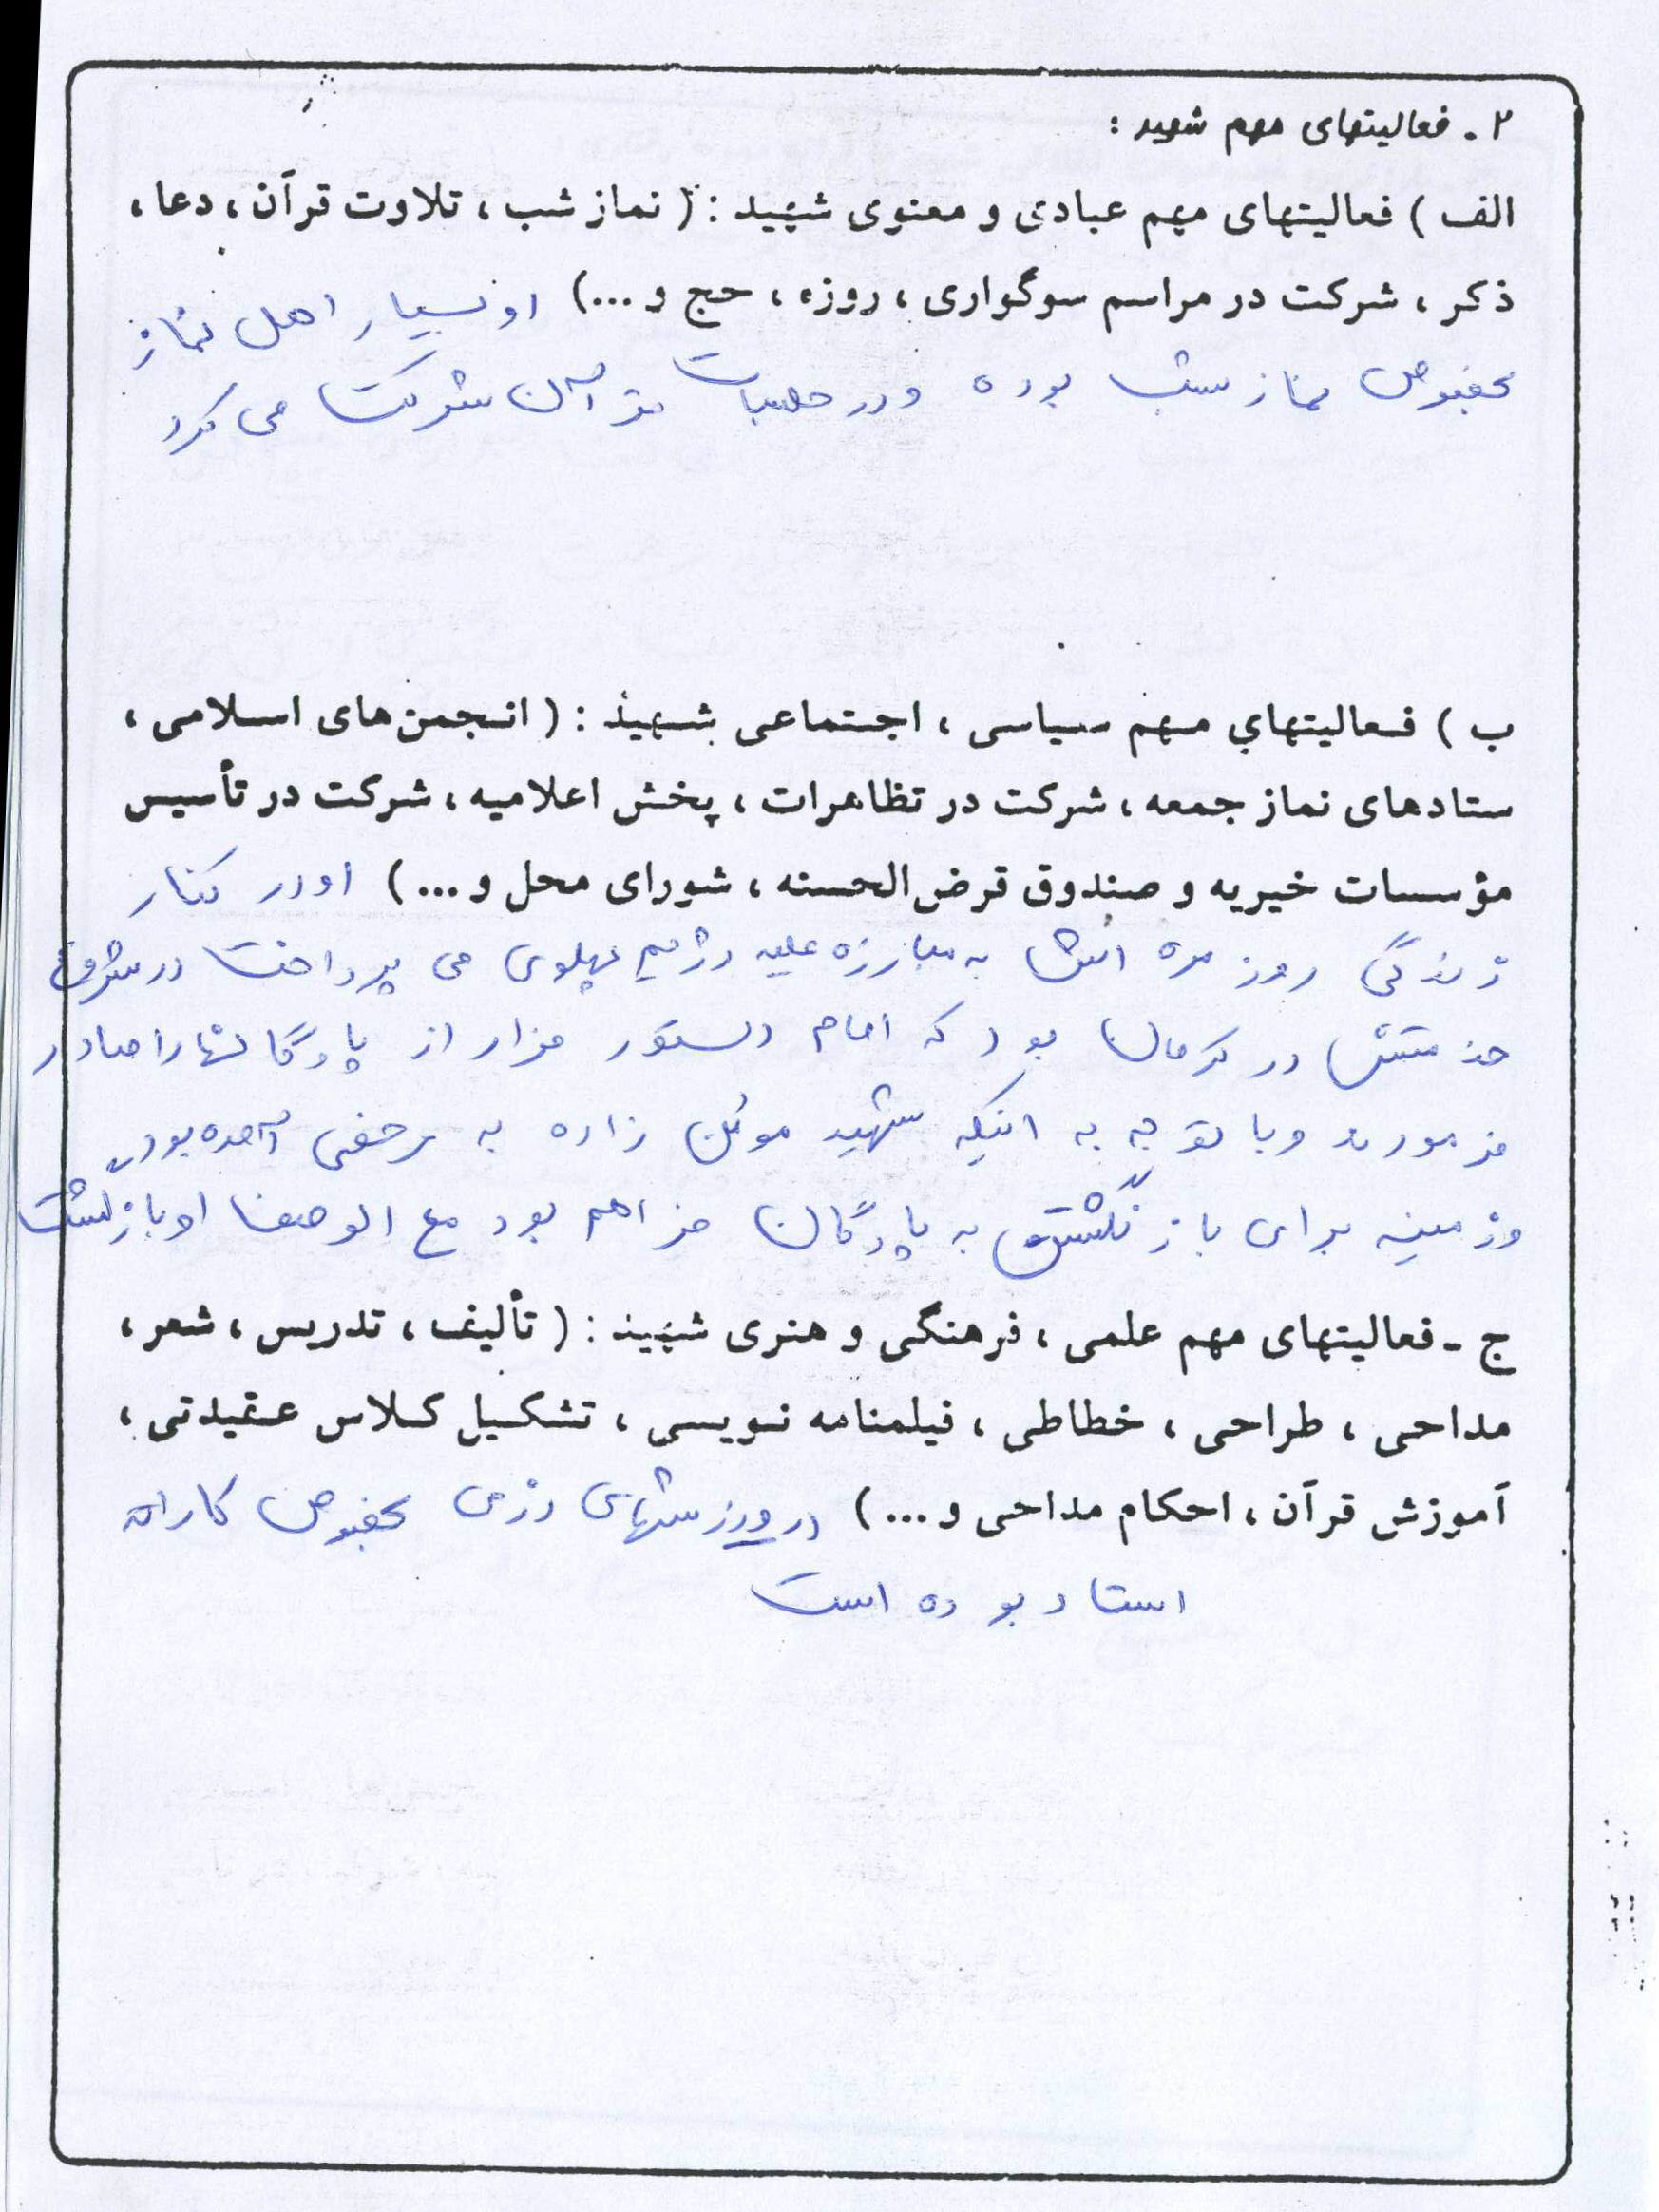 ۲ ـ فعالیتهای مهم شهید :
الف ) فعالیتهای مهم عبادی و معنوی شهید : ( نماز شب ، تلاوت قرآن ، دعا ،
ذکر ، شرکت در مراسم سوگواری ، روزه ، حج و ...) او بسیار اهل نماز
بخصوص نماز شب بوده ودر جلسات قرآن شرکت می کرد
ب ) فعالیتهای مهم سیاسی ، اجتماعی شهید : ( انجمن‌های اسلامی ،
ستادهای نماز جمعه ، شرکت در تظاهرات ، پخش اعلامیه ، شرکت در تأسیس
مؤسسات خیریه و صندوق قرض‌الحسنه ، شورای محل و ...) او در کنار
زندگی روز مره اش به مبارزه علیه رژیم پهلوی می پرداخت در شروع
خدمتش در کرمان بود که امام دستور فرار از پادگانها را صادر
فرمودند وبا توجه به اینکه شهید زاده به مرخصی آمده بود
وزمینه برای باز نگشتن به پادگان فراهم بود مع الوصف او بازگشت
ج ـ فعالیتهای مهم علمی ، فرهنگی و هنری شهید : ( تألیف ، تدریس ، شعر ،
مداحی ، طراحی ، خطاطی ، فیلمنامه نویسی ، تشکیل کلاس عقیدتی ،
آموزش قرآن ، احکام مداحی و ...) در ورزشهای رزمی بخصوص کاراته
استاد بوده است